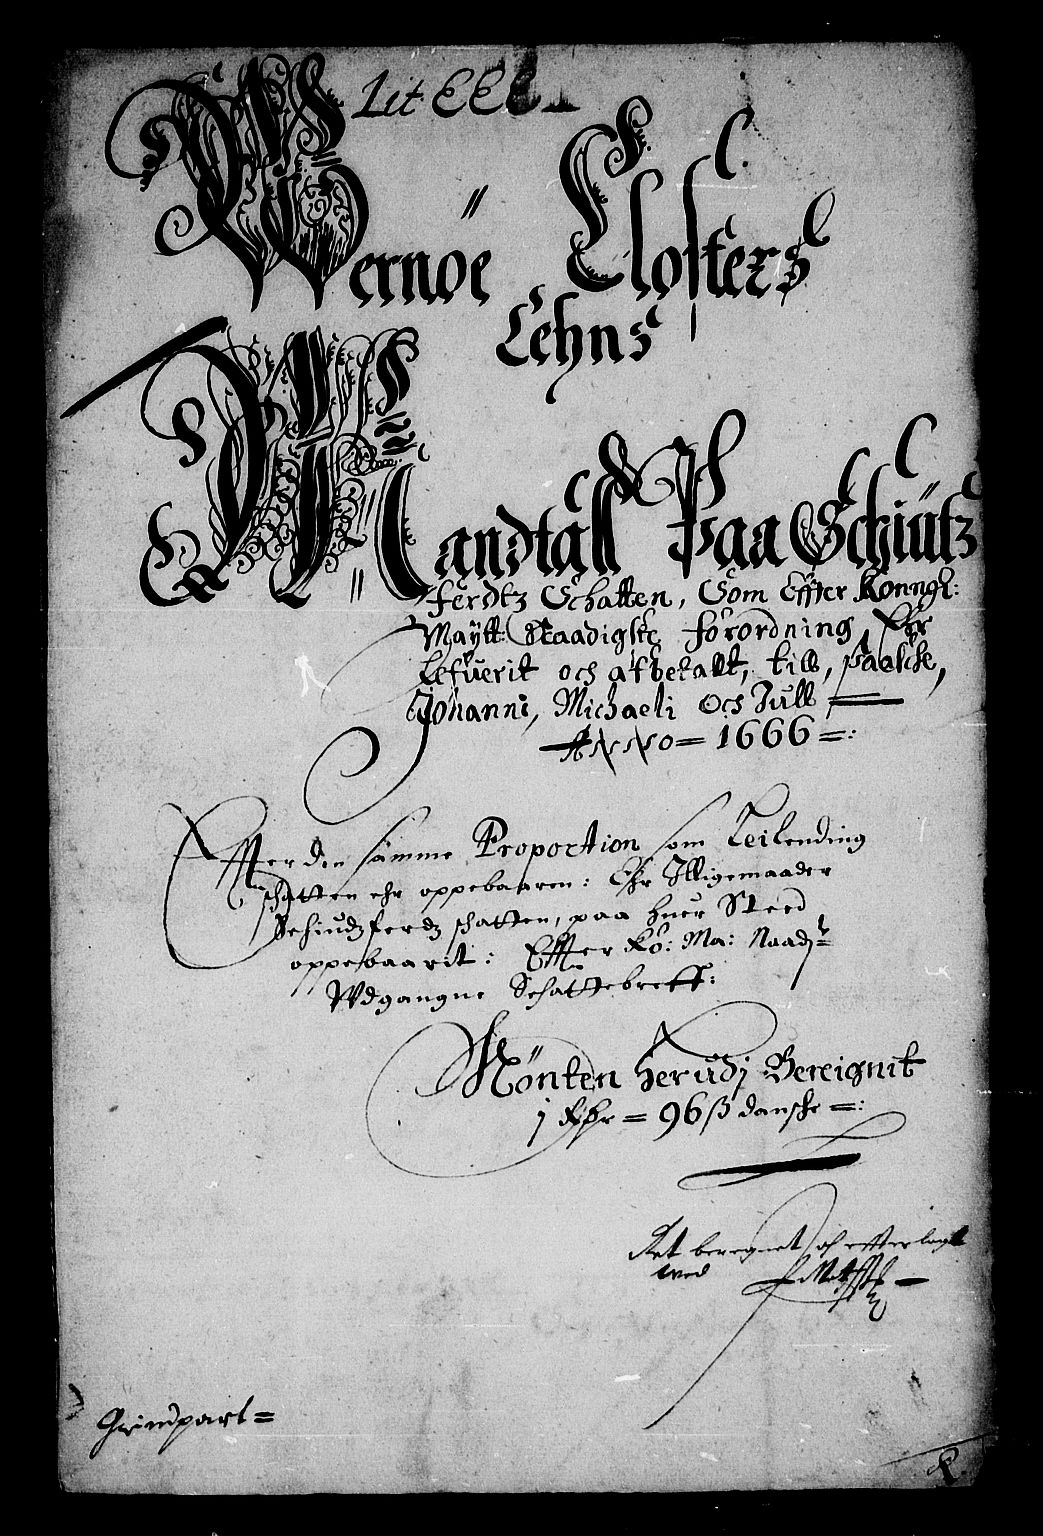 Lit EEE
Wernöe Closters
Lehns
Mandtall Paa Schiütz
ferdtz Schatten, Som Effter Konngl:
Maytt: Naadigste forordning Ehr
Lefuerit och afbetalt, till, paaske,
Johanni, Michaeli Och Jull
ANNO = 1666 =:
Effter den samme Proportion som Leilending
schatten ehr oppebaaren: Ehr Illigemaader
Schiudzferdz schatten, paa huer Sted
oppebaarit: Effter Ko: Ma: Naadz
Wdgangne Schattebreff:
Mönten herudj Bereignit
j Rdr = 96 ß danske =:
Ret beregnet och efterlagt
wed
Grimpart =